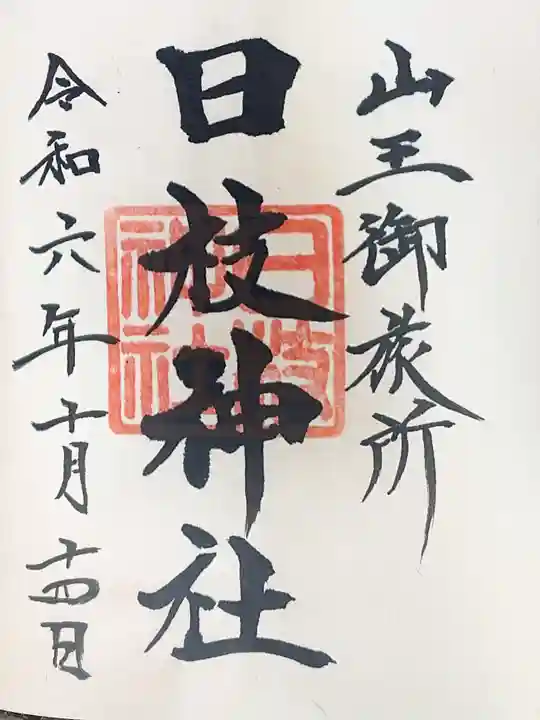 山王御旅所
日枝神社
日枝神社
令和六年十月十四日